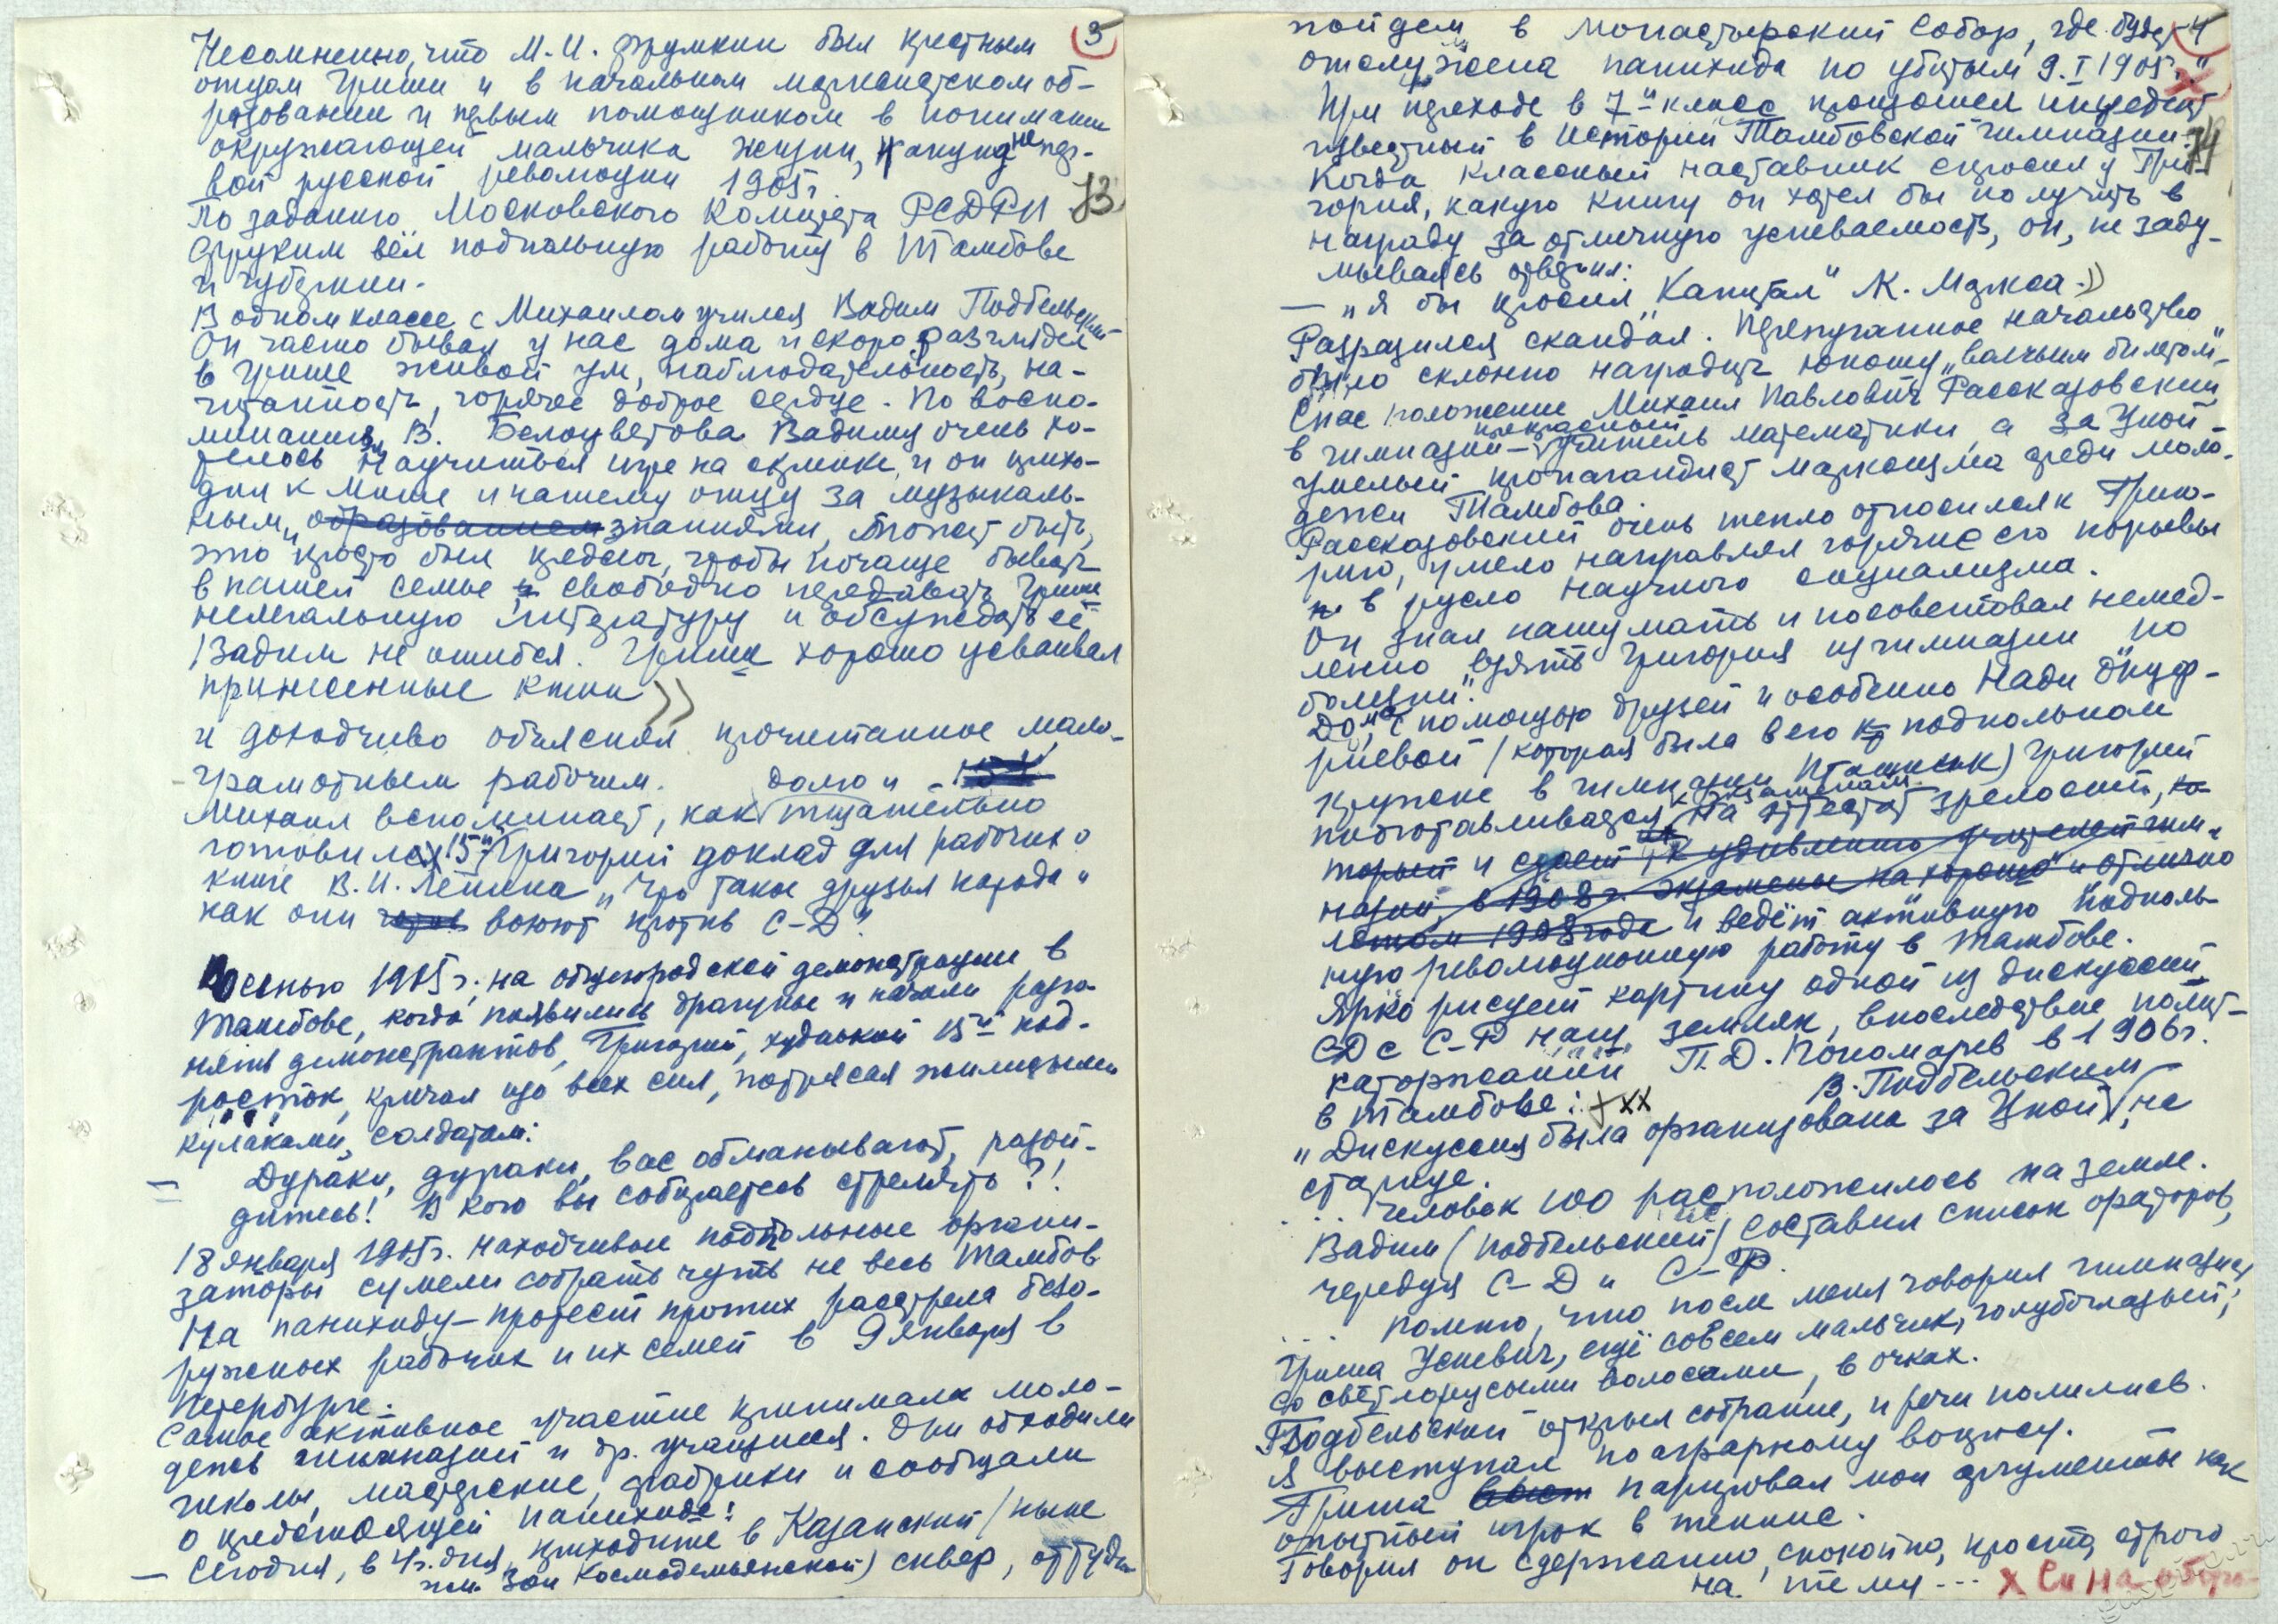 3
Несомненно, что М.И. Фрумкин был крестным
отцом Гриши и в начальном марксистском об-
разовании и первым помощником в понимании
окружающей мальчика жизни, накануне пер-
вой русской революции 1905г.
73
По заданию Московского Комитета РСДРП
Фрумкин вёл подпольную работу в Тамбове
и губернии.
В одном классе с Михаилом учился Вадим Подбельский
Он часто бывал у нас дома и скоро разглядел
в Грише живой ум, наблюдательность, на-
читанность, горячее доброе сердце. По воспо-
минаниям В. Белоцветова Вадиму очень хо-
телось научиться игре на скрипке, и он прихо-
дил к Мише и нашему отцу за музыкаль-
ным„ образованием знаниями, может быть,
это просто был предлог, чтобы почаще бывать
в нашей семье и свободно передавать Грише
нелегальную литературу и обсуждать её
Вадим не ошибся. Гриша хорошо усваивал
принесенные книги))
и доходчиво объяснял прочитанное мало-
грамотным рабочим.
долго и
Михаил вспоминает, как тщательно
готовился 15и Григорий доклад для рабочих о
книге В.И. Ленина „Что такое друзья народа"
как они воюют против С-Д".
Осенью 1905г. на общегородской демонстрации в
Тамбове, когда появились драгуны и начали разго-
нять демонстрантов, Григорий, худенький 15и под-
росток, кричал изо всех сил, потрясая жилистыми
кулаками, солдатам:
— Дураки, дураки, вас обманывают, разой-
дитесь! В кого вы собираетесь стрелять?!
18 января 1905г. находчивые подпольные органи-
заторы сумели собрать чуть не весь Тамбов
на панихиду – протест против расстрела безо-
ружных рабочих и их семей в 9 января в
Петербурге.
Самое активное участие принимала моло-
дежь гимназий и др. учащиеся. Они обходили
школы, мастерские, фабрики и сообщали
о предстоящей панихиде:
— Сегодня, в 4ч. дня, приходите в Казанский /ныне
им. Зои Космодемьянской) сквер, оттуда
4
пойдем в монастырский собор, где будет
отслужена панихида по убитым 9.I 1905г."
х
При переходе в 7й класс произошел инцедент
известный в истории Тамбовской гимназии.
74
Когда классный наставник спросил у Гри-
гория, какую книгу он хотел бы получить в
награду за отличную успеваемость, он, не заду-
мываясь ответил:
— „Я бы просил „Капитал" К. Маркса.))
Разразился скандал. Перепуганное начальство
было склонно наградить юношу „волчьим билетом".
Спас положение Михаил Павлович Рассказовский,
прекрасный
в гимназии – учитель математики, а за Цной –
умелый пропагандист марксизма среди моло-
дежи Тамбова.
Рассказовский очень тепло относился к Григо-
рию, умело направлял горячие его порывы
в русло научного социализма.
Он знал нашу мать и посоветовал немед-
ленно взять Григория из гимназии „по
болезни".
Дома, с помощью друзей и особенно Нади
риевой /которая была в его подпольном
кружке в гимназии ) Григорий
к экзаменам
подготавливается на аттестат зрелости, ко-
торый и сдает к удивлению учителей гим-
назии, в 1908г. экзамены на хорошо" и отлично
летом 1908 года и ведёт активную подполь-
ную революционную работу в Тамбове.
Ярко рисует картину одной из дискуссий
СД с С-Р наш земляк, впоследствие полит-
каторжанин П.Д. Пономарев в 1906г.
в Тамбове: +хх
В. Подбельским
„Дискуссия была организована за Цной на
старице.
... Человек 100 расположилось на земле.
Вадим (Подбельский) составил список ораторов,
чередуя С-Д и С-Р.
... Помню, что после меня говорил гимназист
Гриша Усиевич, ещё совсем мальчик, голубоглазый,
со светлорусыми волосами, в очках.
Подбельский открыл собрание, и речи полились.
Я выступал по аграрному вопросу.
Гриша парировал мои аргументы как
опытный игрок в теннис.
Говорил он сдержанно, спокойно, просто, строго
на тему...
х См на обро-